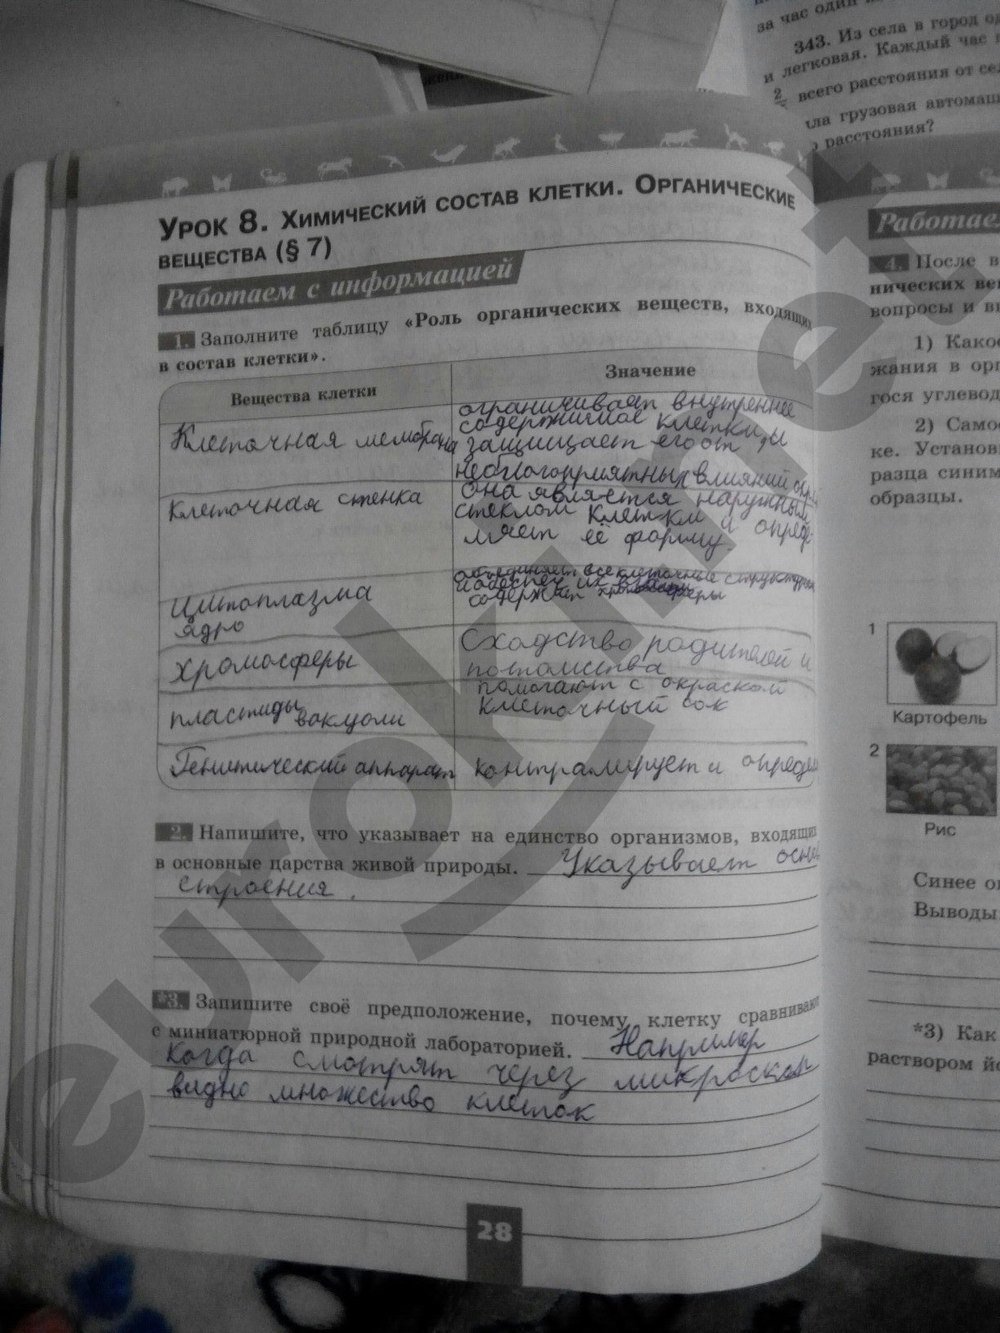 за час один
343. Из села в город
и легковая. Каждый час
2
всего расстояния от
ла грузовая
расстояния?
Урок 8. Химический состав клетки. Органические
вещества (§ 7)
Работаем с информацией
1. Заполните таблицу «Роль органических веществ, входящих
в состав клетки».
Вещества клетки
Значение
Клеточная мембрана
ограничивает внутреннее
содержимое клетки, и
защищает его от
неблагоприятных влияний
Клеточная стенка
она является наружным
стеклом клетки и опреде-
ляет её форму
Цитоплазма
ядро
объединяет все клеточные структуры
содержат
хромосферы
Сходство родителей и
потомства
пластиды вакуоли
помогают с окраской
клеточный сок
Генитический аппарат
контрамирует и опреде
2. Напишите, что указывает на единство организмов, входящих
в основные царства живой природы. Указывает
строения.
*3. Запишите своё предположение, почему клетку сравнивают
с миниатюрной природной лабораторией. Например
когда смотрят через микроскоп
видно множество клеток
28
Работаем
4. После
нических
вопросы и
1) Какое
жания в
гося
2)
ке.
разца синим
образцы.
1
Картофель
2
Рис
Синее
Выводы
*3) Как
раствором
euroki.net